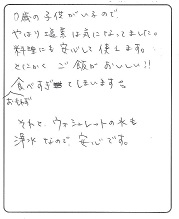 0歳の子供がいるので
やはり塩素は気になってました。
料理にも安心して使えます。
とにかく ご飯がおいしい!!
食べすぎてしまいます。
おもわず
それと、ウォシュレットの水も
浄水なので、安心です。